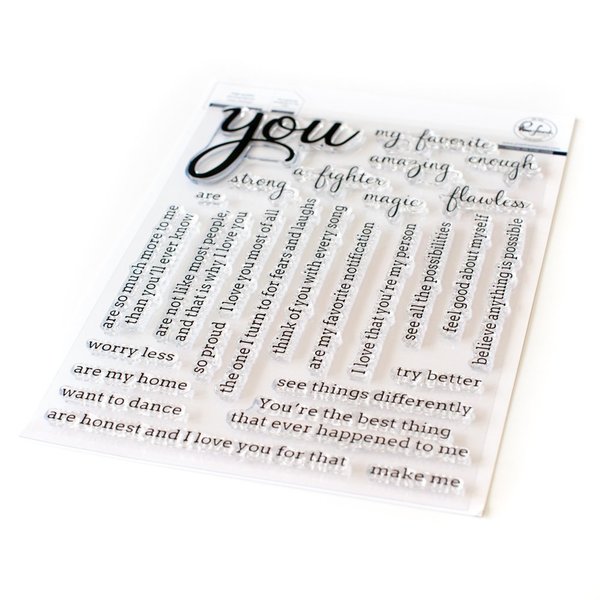 you
my favorite
amazing enough
a fighter
strong magic flawless
are
are so much more to me
than you'll ever know
are not like most people,
and that is why I love you
so proud I love you most of all
the one I turn to for fears and laughs
think of you with every song
are my favorite notification
I love that you're my person
see all the possibilities
feel good about myself
believe anything is possible
worry less
are my home
want to dance
are honest and I love you for that
try better
see things differently
You're the best thing
that ever happened to me
make me